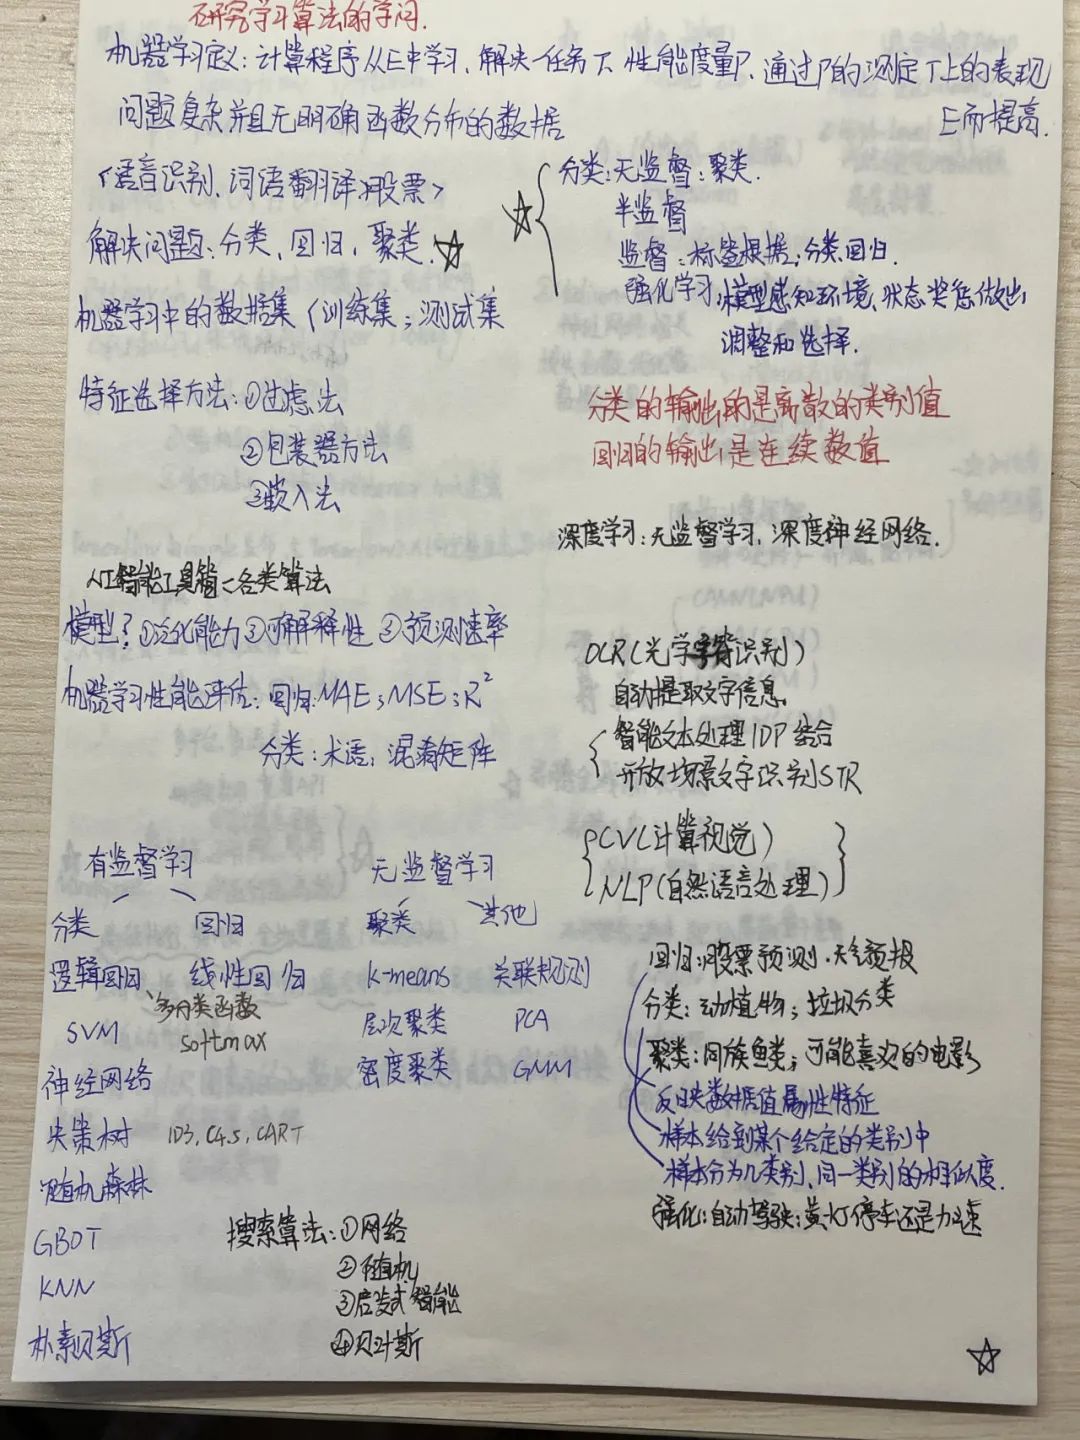 研究学习算法的学问.
机器学习定义:计算程序从E中学习,解决任务T,性能度量P,通过P的测定T上的表现
E而提高.
问题复杂并且无明确函数分布的数据
<语音识别、词语翻译,股票>
解决问题:分类,回归,聚类.☆
☆ 分类:无监督:聚类.
半监督
监督:标签根据,分类,回归.
强化学习,模型感知环境、状态奖惩做出
调整和选择.
机器学习中的数据集(训练集;测试集
特征选择方法:①过滤法
②包装器方法
③嵌入法
分类的输出的是离散的类别值
回归的输出是连续数值
深度学习:无监督学习,深度神经网络.
人工智能工具箱=各类算法
模型?①泛化能力②可解释性③预测速率
机器学习性能评估:回归:MAE;MSE;R²
分类:术语;混淆矩阵
OCR(光学字符识别)
自动提取文字信息。
智能文本处理IDP结合
开放场景文字识别STR
CV(计算视觉)
NLP(自然语言处理)
有监督学习 无监督学习
分类 回归 聚类 其他
逻辑回归 线性回归 k-means 关联规则
多分类函数
SVM softmax 层次聚类 PCA
神经网络 密度聚类 GMM
决策树 ID3,C4.5,CART
随机森林
GBDT
KNN
朴素贝斯
搜索算法:①网络
②随机
③启发式智能
④贝叶斯
回归:股票预测.天气预报
分类:动植物;垃圾分类
聚类:同族鱼类;可能喜欢的电影
反映数据值属性特征
样本给到某个给定的类别中
样本分为几类别,同一类别的相似度.
强化:自动驾驶:黄灯停车还是加速
☆